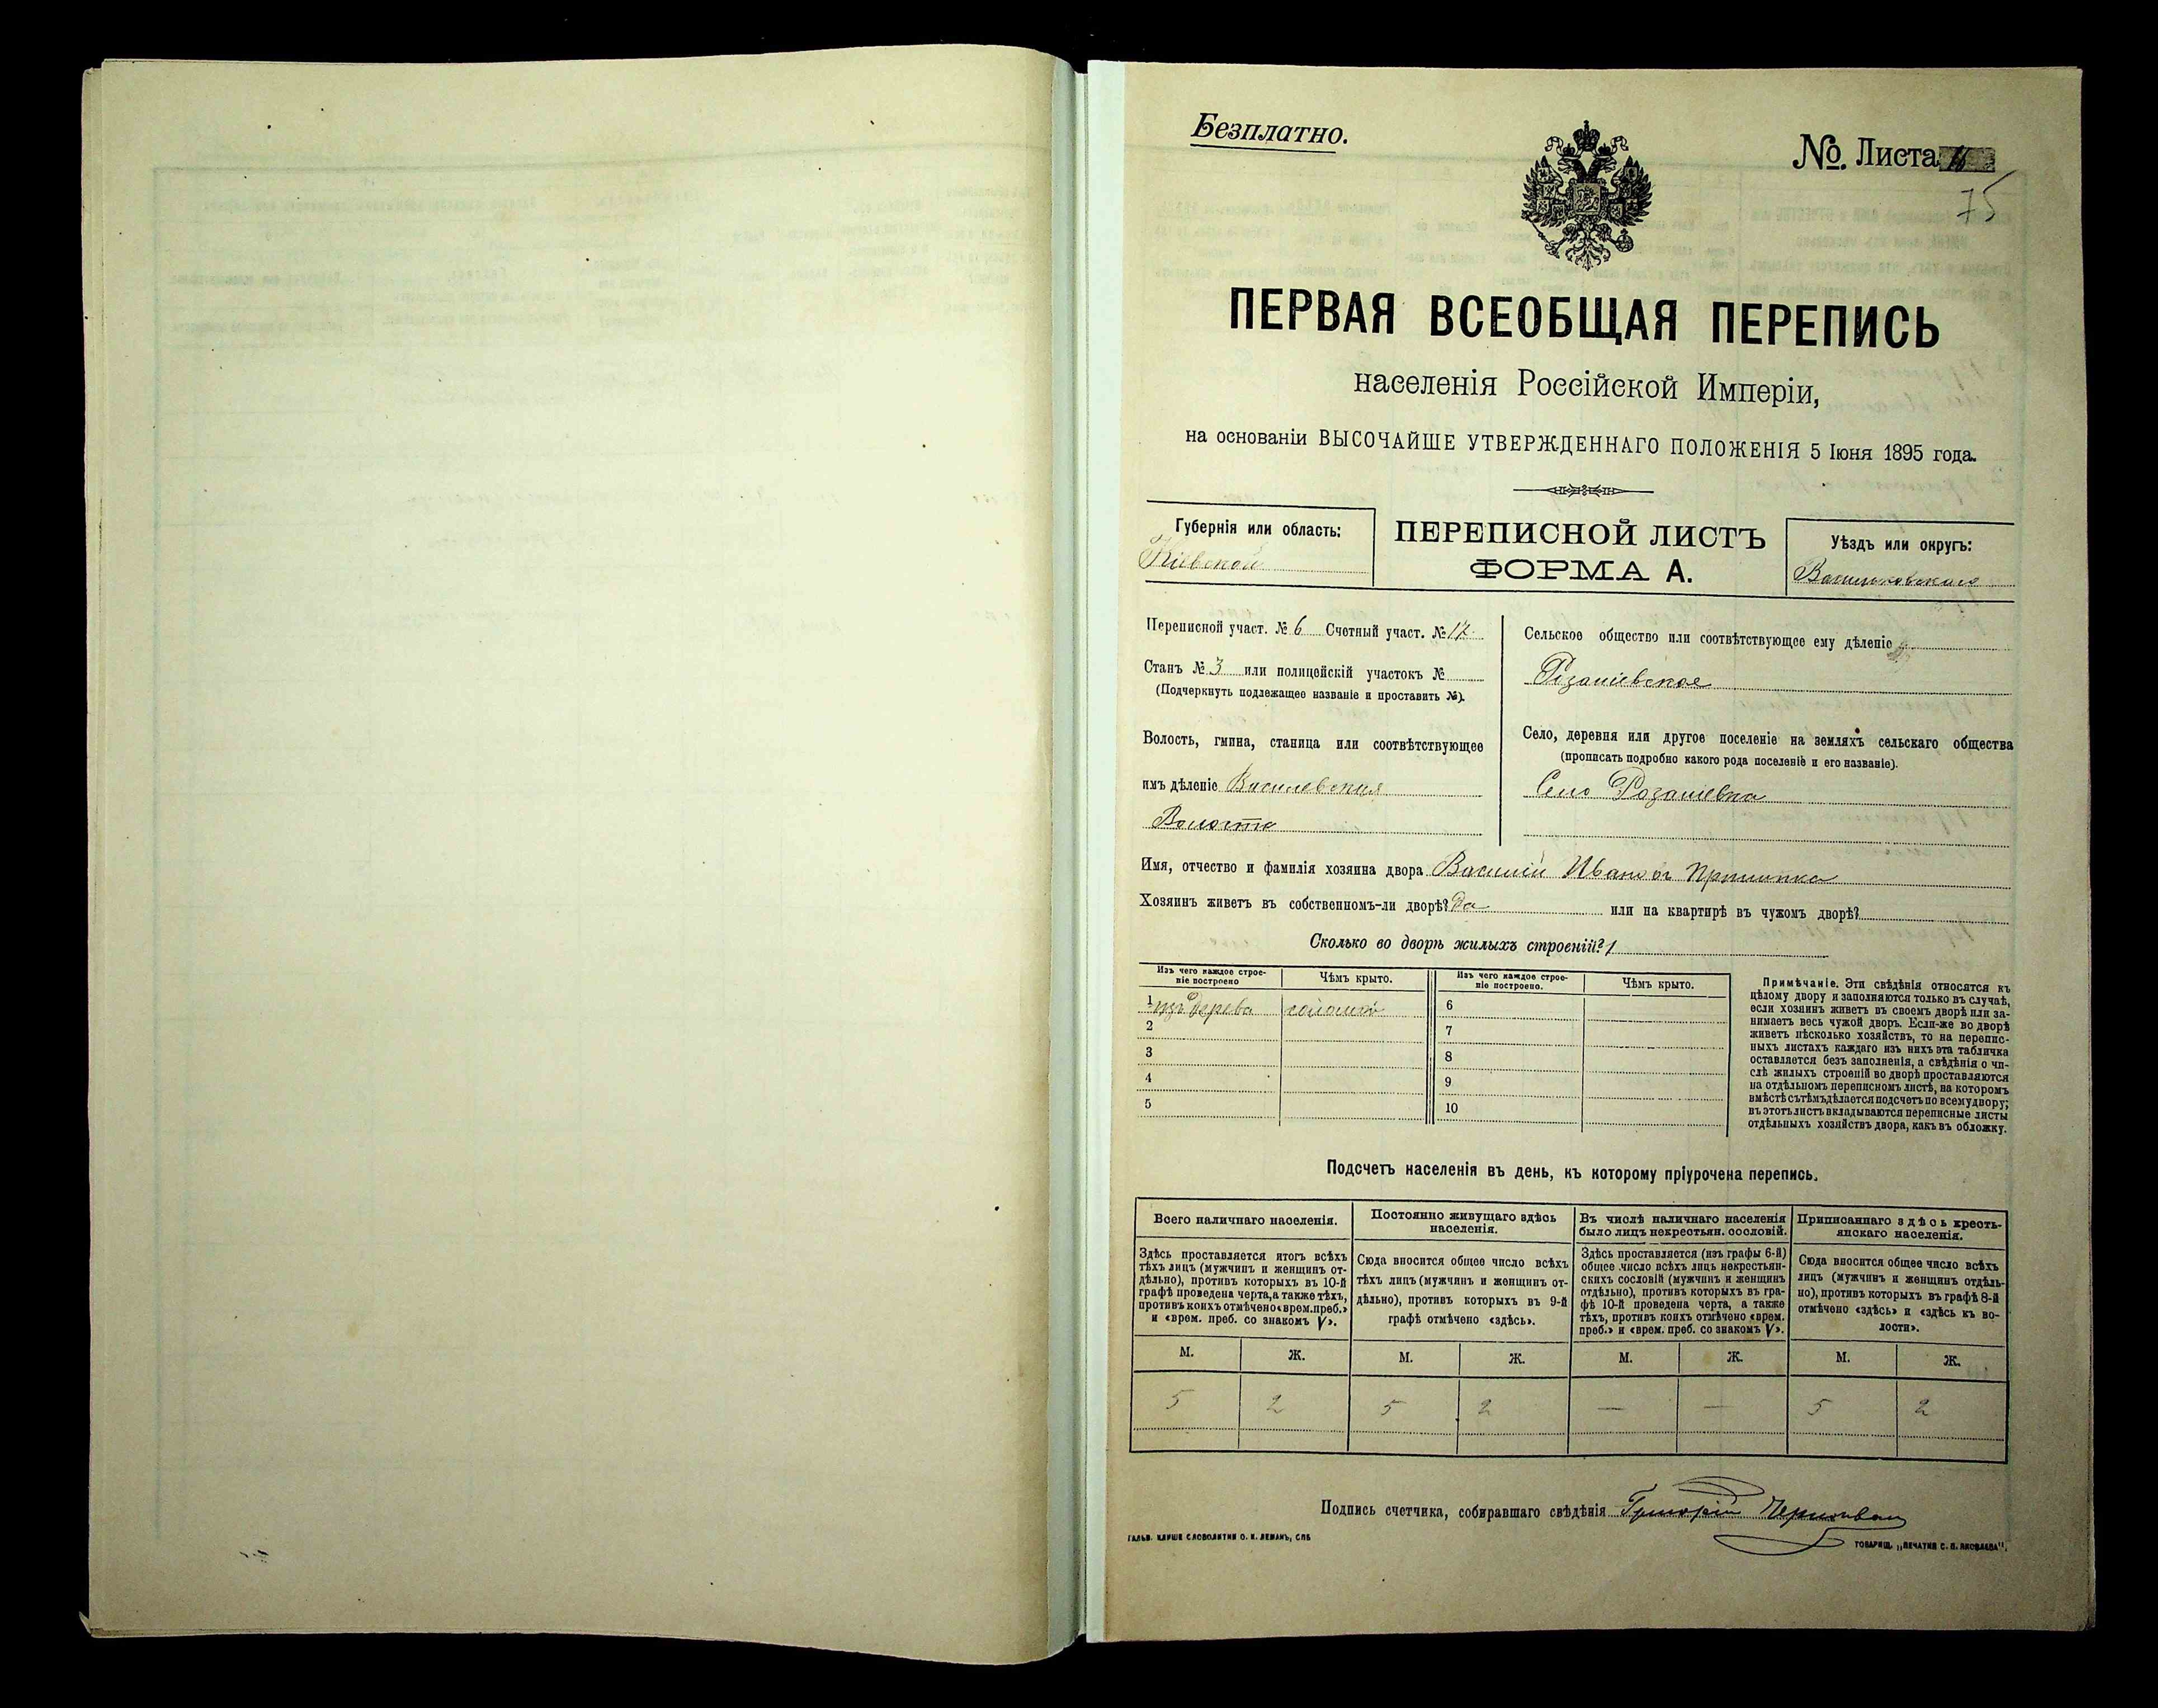 Безплатно.
№. Листа 16
75
ПЕРВАЯ ВСЕОБЩАЯ ПЕРЕПИСЬ
населенія Россійской Имперіи,
на основаніи ВЫСОЧАЙШЕ УТВЕРЖДЕННАГО ПОЛОЖЕНІЯ 5 Іюня 1895 года.
Губернія или область:
Кіевской
ПЕРЕПИСНОЙ ЛИСТЪ
ФОРМА А.
Уѣздъ или округъ:
Васильковскаго
Переписной участ. № 6 Счетный участ. № 17
Станъ № 3 или полицейскій участокъ №
(Подчеркнуть подлежащее названіе и проставить №).
Волость, гмина, станица или соотвѣтствующее
имъ дѣленіе
Волость
Сельское общество или соотвѣтствующее ему дѣленіе
Село, деревня или другое поселеніе на земляхъ сельскаго общества
(прописать подробно какого рода поселеніе и его названіе).
Село
Имя, отчество и фамилія хозяина двора Василій Ивановъ
Хозяинъ живетъ въ собственномъ-ли дворѣ? Да или на квартирѣ въ чужомъ дворѣ?
Сколько во дворѣ жилыхъ строеній? 1
Изъ чего каждое строе-
ніе построено
Чѣмъ крыто.
Изъ чего каждое строе-
ніе построено.
Чѣмъ крыто.
1 изъ дерева соломой
2
3
4
5
6
7
8
9
10
Примѣчаніе. Эти свѣдѣнія относятся къ
цѣлому двору и заполняются только въ случаѣ,
если хозяинъ живетъ въ своемъ дворѣ или за-
нимаетъ весь чужой дворъ. Если-же во дворѣ
живетъ нѣсколько хозяйствъ, то на перепис-
ныхъ листахъ каждаго изъ нихъ эта табличка
оставляется безъ заполненія, а свѣдѣнія о чи-
слѣ жилыхъ строеній во дворѣ проставляются
на отдѣльномъ переписномъ листѣ, на которомъ
вмѣстѣ сътѣмъ дѣлается подсчетъ по всему двору;
въ этотъ листъ вкладываются переписные листы
отдѣльныхъ хозяйствъ двора, какъ въ обложку.
Подсчетъ населенія въ день, къ которому пріурочена перепись.
Всего наличнаго населенія.
Постоянно живущаго здѣсь
населенія.
Въ числѣ наличнаго населенія
было лицъ некрестьян. сословій.
Приписаннаго здѣсь кресть-
янскаго населенія.
Здѣсь проставляется итогъ всѣхъ
тѣхъ лицъ (мужчинъ и женщинъ от-
дѣльно), противъ которыхъ въ 10-й
графѣ проведена черта, а также тѣхъ,
противъ коихъ отмѣчено «врем. преб.»
и «врем. преб. со знакомъ V».
Сюда вносится общее число всѣхъ
тѣхъ лицъ (мужчинъ и женщинъ от-
дѣльно), противъ которыхъ въ 9-й
графѣ отмѣчено «здѣсь».
Здѣсь проставляется (изъ графы 6-й)
общее число всѣхъ лицъ некрестьян-
скихъ сословій (мужчинъ и женщинъ
отдѣльно), противъ которыхъ въ гра-
фѣ 10-й проведена черта, а также
тѣхъ, противъ коихъ отмѣчено «врем.
преб.» и «врем. преб. со знакомъ V».
Сюда вносится общее число всѣхъ
лицъ (мужчинъ и женщинъ отдѣль-
но), противъ которыхъ въ графѣ 8-й
отмѣчено «здѣсь» и «здѣсь къ во-
лости».
М. Ж. М. Ж. М. Ж. М. Ж.
5 2 5 2 — — 5 2
Подпись счетчика, собиравшаго свѣдѣнія Григорій
ГАЛЬВ. КЛИШЕ СЛОВОЛИТНИ О. И. ЛЕМАНЪ, СПБ
ТОВАРИЩ. „ПЕЧАТНЯ С. П. ЯКОВЛЕВА".